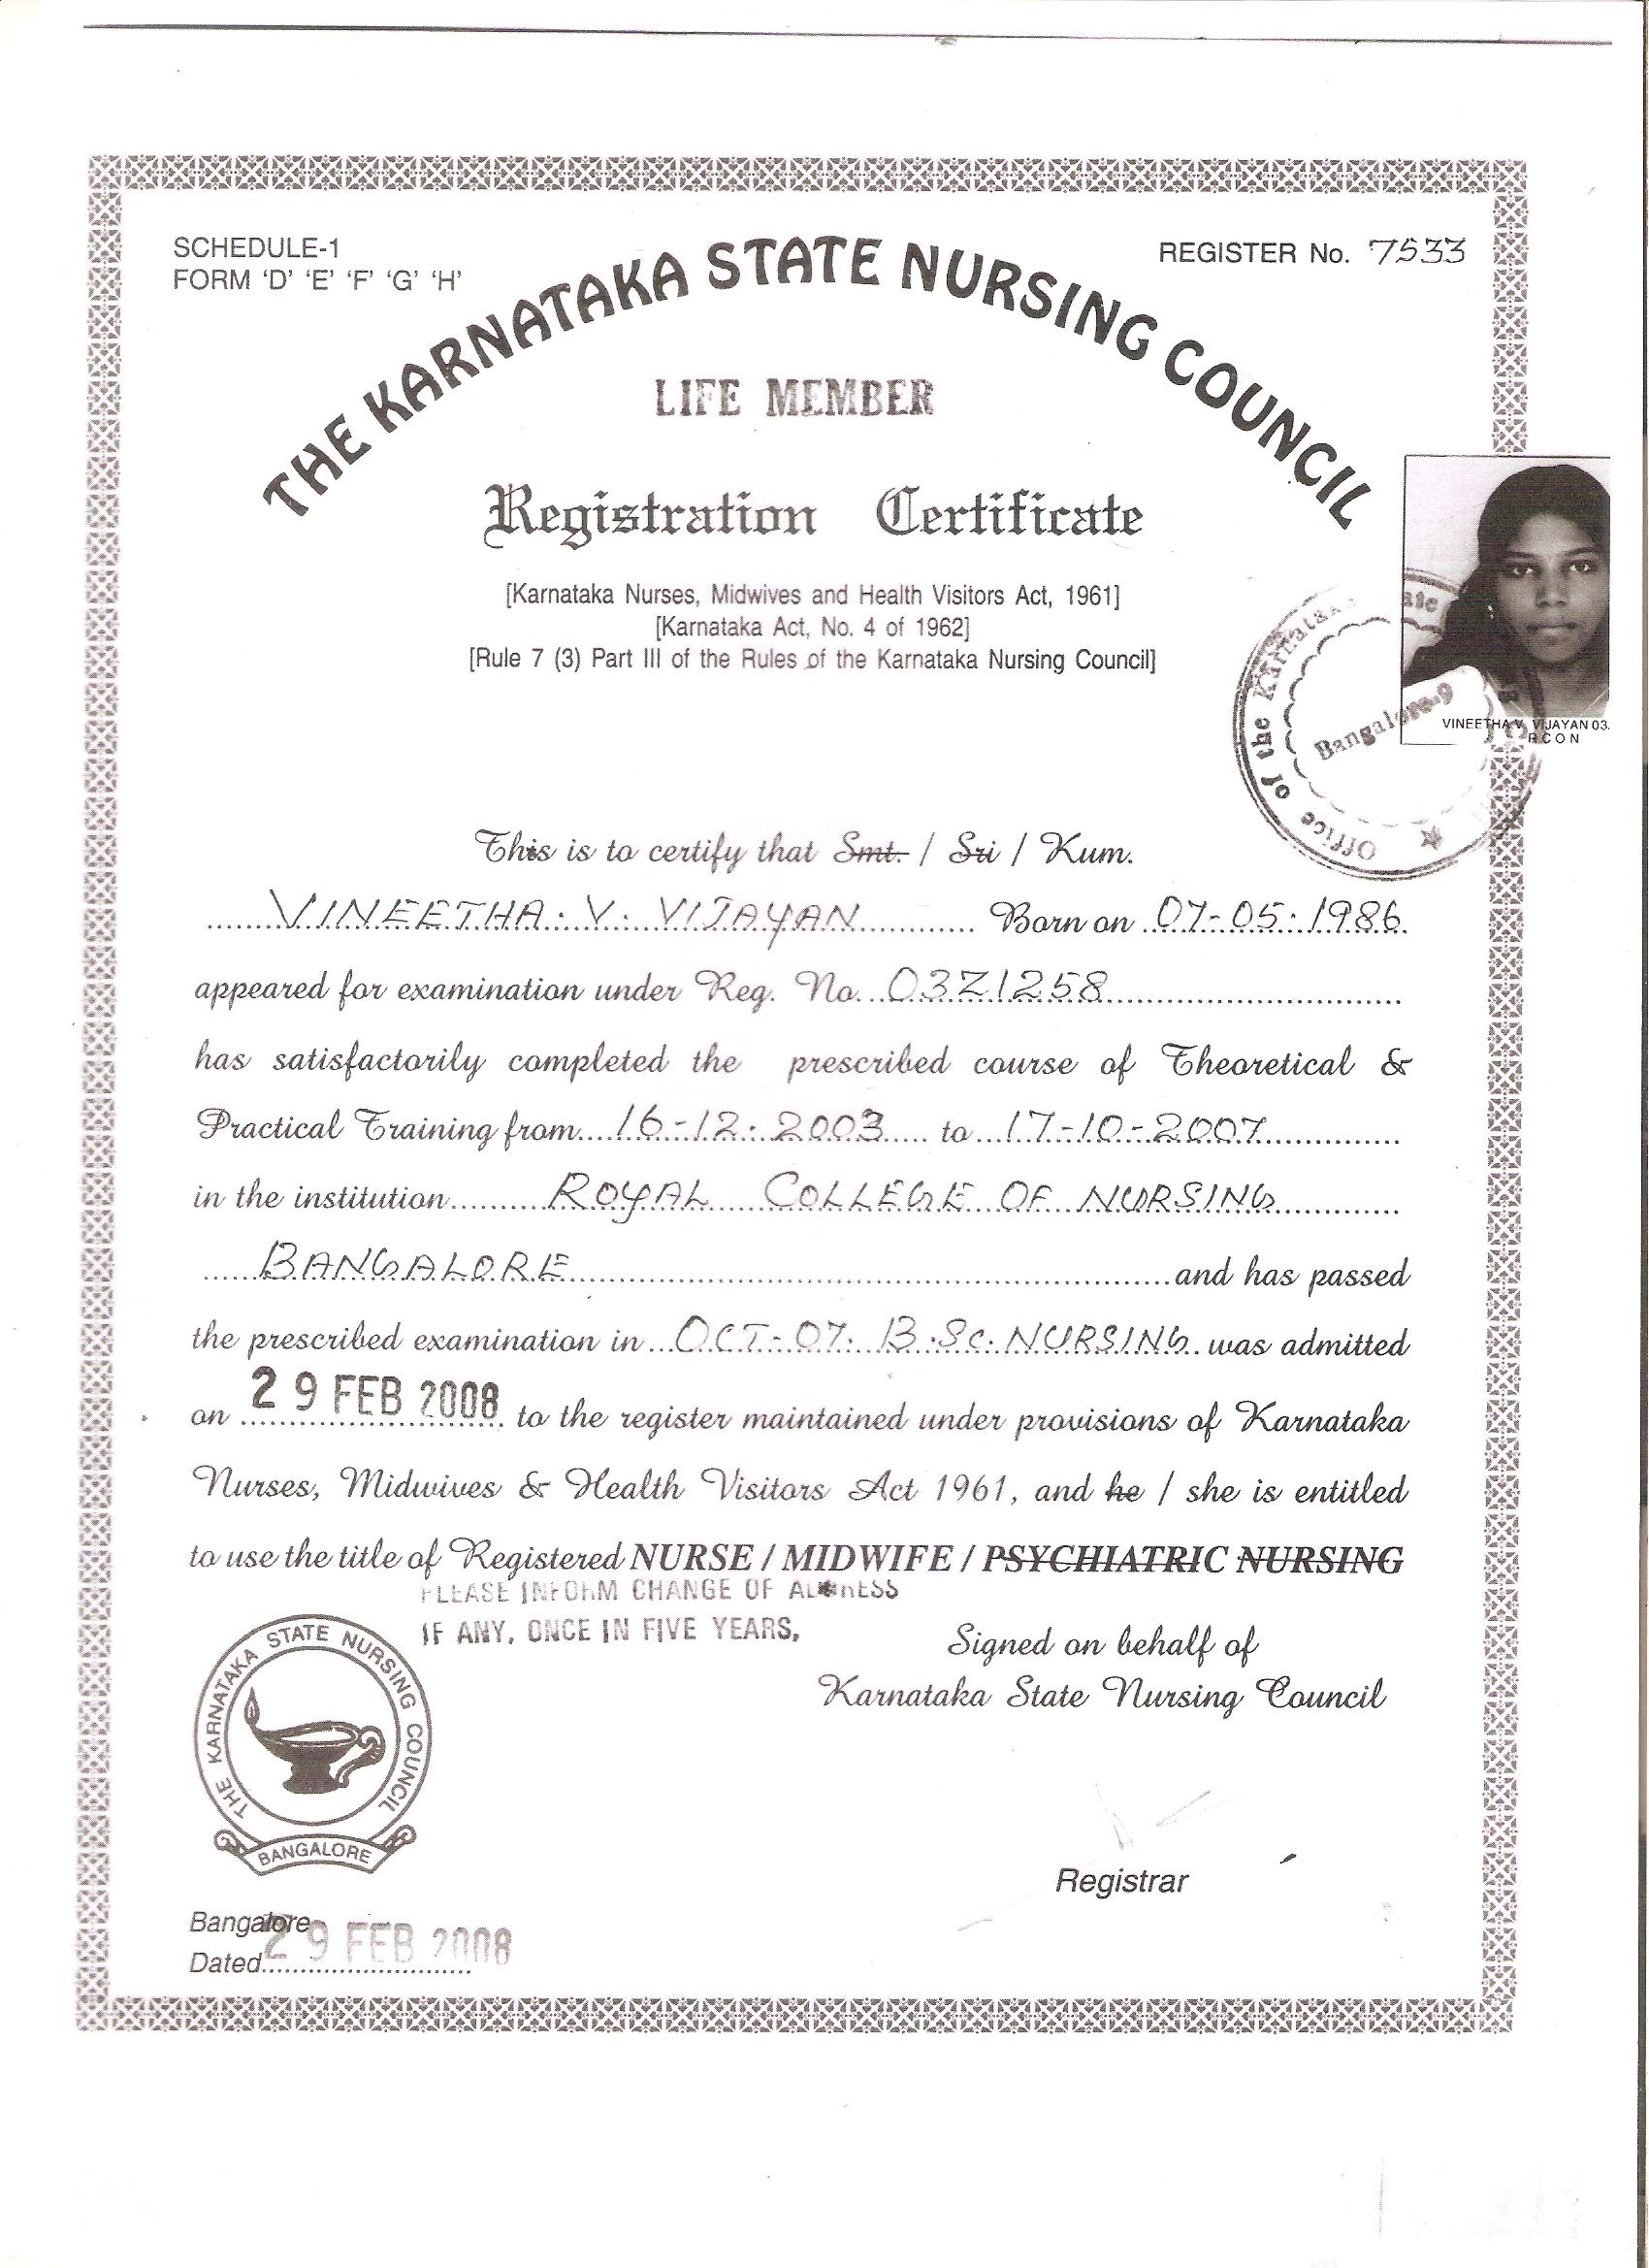 SCHEDULE-1
FORM 'D' 'E' 'F' 'G' 'H'
REGISTER No. 7533
THE KARNATAKA STATE NURSING COUNCIL
LIFE MEMBER
Registration Certificate
[Karnataka Nurses, Midwives and Health Visitors Act, 1961]
[Karnataka Act, No. 4 of 1962]
[Rule 7 (3) Part III of the Rules of the Karnataka Nursing Council]
VINEETHA V. VIJAYAN 03.
R C O N
Office of the Karnataka State
Bangalore-9
This is to certify that Smt. / Sri / Kum.
VINEETHA. V. VIJAYAN Born on 07-05-1986
appeared for examination under Reg. No. 03Z1258
has satisfactorily completed the prescribed course of Theoretical &
Practical Training from 16-12-2003 to 17-10-2007
in the institution ROYAL COLLEGE OF NURSING
BANGALORE and has passed
the prescribed examination in OCT-07. B.Sc. NURSING was admitted
on 29 FEB 2008 to the register maintained under provisions of Karnataka
Nurses, Midwives & Health Visitors Act 1961, and he / she is entitled
to use the title of Registered NURSE / MIDWIFE / PSYCHIATRIC NURSING
PLEASE INFORM CHANGE OF ADDRESS
IF ANY, ONCE IN FIVE YEARS,
Signed on behalf of
Karnataka State Nursing Council
THE KARNATAKA STATE NURSING COUNCIL
BANGALORE
Registrar
Bangalore
Dated 29 FEB 2008